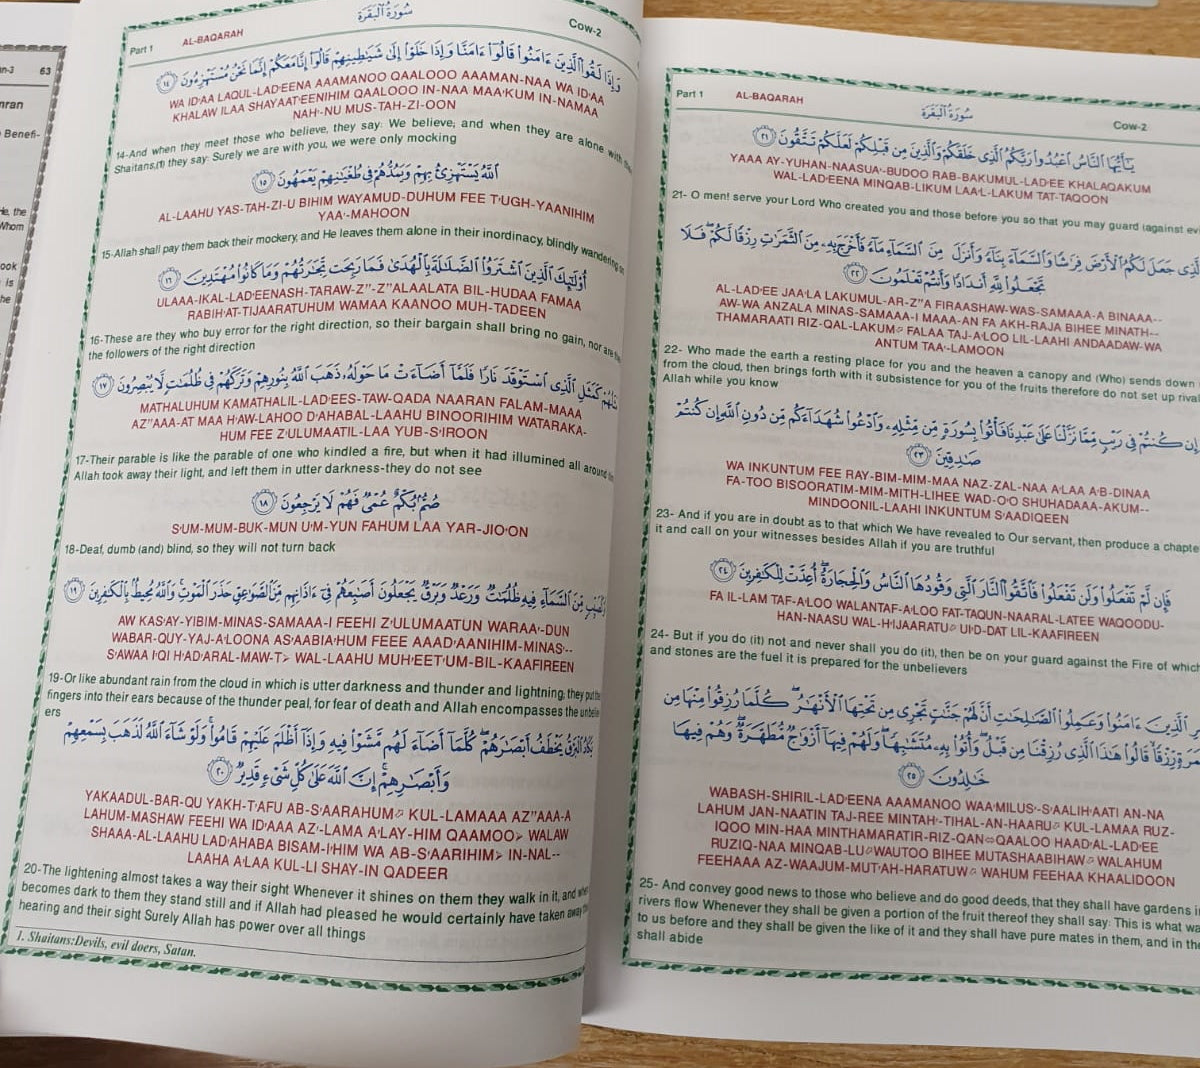 n-3 63
nran
Benefi-
He, the
Whom
ook
is
he
Part 1 AL-BAQARAH سُورَةُ الْبَقَرَة Cow-2
وَإِذَا لَقُوا الَّذِينَ ءَامَنُوا قَالُوا ءَامَنَّا وَإِذَا خَلَوْا إِلَى شَيَاطِينِهِمْ قَالُوا إِنَّا مَعَكُمْ إِنَّمَا نَحْنُ مُسْتَهْزِءُونَ ١٤
WA ID'AA LAQUL-LAD'EENA AAAMANOO QAALOOO AAAMAN-NAA WA ID'AA
KHALAW ILAA SHAYAAT'EENIHIM QAALOOO IN-NAA MAA'KUM IN-NAMAA
NAH'-NU MUS-TAH-ZI-OON
14-And when they meet those who believe, they say: We believe; and when they are alone with
Shaitans,(1) they say: Surely we are with you, we were only mocking
اللَّهُ يَسْتَهْزِئُ بِهِمْ وَيَمُدُّهُمْ فِي طُغْيَانِهِمْ يَعْمَهُونَ ١٥
AL-LAAHU YAS-TAH-ZI-U BIHIM WAYAMUD-DUHUM FEE T'UGH-YAANIHIM
YAA'-MAHOON
15-Allah shall pay them back their mockery, and He leaves them alone in their inordinacy, blindly wandering on
أُولَٰئِكَ الَّذِينَ اشْتَرَوُا الضَّلَالَةَ بِالْهُدَىٰ فَمَا رَبِحَت تِّجَارَتُهُمْ وَمَا كَانُوا مُهْتَدِينَ ١٦
ULAAA-IKAL-LAD'EENASH-TARAW-Z''-Z''ALAALATA BIL-HUDAA FAMAA
RABIH'AT-TIJAARATUHUM WAMAA KAANOO MUH-TADEEN
16-These are they who buy error for the right direction, so their bargain shall bring no gain, nor are
the followers of the right direction
مَثَلُهُمْ كَمَثَلِ الَّذِي اسْتَوْقَدَ نَارًا فَلَمَّا أَضَاءَتْ مَا حَوْلَهُ ذَهَبَ اللَّهُ بِنُورِهِمْ وَتَرَكَهُمْ فِي ظُلُمَاتٍ لَّا يُبْصِرُونَ ١٧
MATHALUHUM KAMATHALIL-LAD'EES-TAW-QADA NAARAN FALAM-MAAA
AZ''AAA-AT MAA H'AW-LAHOO D'AHABAL-LAAHU BINOORIHIM WATARAKA-
HUM FEE Z'ULUMAATIL-LAA YUB-S'IROON
17-Their parable is like the parable of one who kindled a fire, but when it had illumined all around
Allah took away their light, and left them in utter darkness-they do not see
صُمٌّ بُكْمٌ عُمْيٌ فَهُمْ لَا يَرْجِعُونَ ١٨
S'UM-MUM-BUK-MUN U'M-YUN FAHUM LAA YAR-JIO'ON
18-Deaf, dumb (and) blind, so they will not turn back
أَوْ كَصَيِّبٍ مِّنَ السَّمَاءِ فِيهِ ظُلُمَاتٌ وَرَعْدٌ وَبَرْقٌ يَجْعَلُونَ أَصَابِعَهُمْ فِي ءَاذَانِهِم مِّنَ الصَّوَاعِقِ حَذَرَ الْمَوْتِ وَاللَّهُ مُحِيطٌ بِالْكَافِرِينَ ١٩
AW KAS'AY-YIBIM-MINAS-SAMAAA-I FEEHI Z'ULUMAATUN WARAA'-DUN
WABAR-QUY-YAJ-A'LOONA AS'AABIA'HUM FEEE AAAD'AANIHIM-MINAS'--
S'AWAA I'QI H'AD'ARAL-MAW-T> WAL-LAAHU MUH'EET'UM-BIL-KAAFIREEN
19-Or like abundant rain from the cloud in which is utter darkness and thunder and lightning; they put
fingers into their ears because of the thunder peal, for fear of death and Allah encompasses the unbeliev
ers
يَكَادُ الْبَرْقُ يَخْطَفُ أَبْصَارَهُمْ كُلَّمَا أَضَاءَ لَهُم مَّشَوْا فِيهِ وَإِذَا أَظْلَمَ عَلَيْهِمْ قَامُوا وَلَوْ شَاءَ اللَّهُ لَذَهَبَ بِسَمْعِهِمْ
وَأَبْصَارِهِمْ إِنَّ اللَّهَ عَلَىٰ كُلِّ شَيْءٍ قَدِيرٌ ٢٠
YAKAADUL-BAR-QU YAKH-T'AFU AB-S'AARAHUM KUL-LAMAAA AZ''AAA-A
LAHUM-MASHAW FEEHI WA ID'AAA AZ'-LAMA A'LAY-HIM QAAMOO> WALAW
SHAAA-AL-LAAHU LAD'AHABA BISAM-I'HIM WA AB-S'AARIHIM> IN-NAL--
LAAHA A'LAA KUL-LI SHAY-IN QADEER
20-The lightening almost takes a way their sight Whenever it shines on them they walk in it, and when
becomes dark to them they stand still and if Allah had pleased he would certainly have taken away
hearing and their sight Surely Allah has power over all things
1. Shaitans:Devils, evil doers, Satan.
Part 1 AL-BAQARAH سُورَةُ الْبَقَرَة Cow-2
يَا أَيُّهَا النَّاسُ اعْبُدُوا رَبَّكُمُ الَّذِي خَلَقَكُمْ وَالَّذِينَ مِن قَبْلِكُمْ لَعَلَّكُمْ تَتَّقُونَ ٢١
YAAA AY-YUHAN-NAASUA'-BUDOO RAB-BAKUMUL-LAD'EE KHALAQAKUM
WAL-LAD'EENA MINQAB-LIKUM LAA'L-LAKUM TAT-TAQOON
21- O men! serve your Lord Who created you and those before you so that you may guard (against evi
الَّذِي جَعَلَ لَكُمُ الْأَرْضَ فِرَاشًا وَالسَّمَاءَ بِنَاءً وَأَنزَلَ مِنَ السَّمَاءِ مَاءً فَأَخْرَجَ بِهِ مِنَ الثَّمَرَاتِ رِزْقًا لَّكُمْ فَلَا
تَجْعَلُوا لِلَّهِ أَندَادًا وَأَنتُمْ تَعْلَمُونَ ٢٢
AL-LAD'EE JAA'LA LAKUMUL-AR-Z''A FIRAASHAW-WAS-SAMAAA-A BINAAA--
AW-WA ANZALA MINAS-SAMAAA-I MAAA-AN FA AKH-RAJA BIHEE MINATH--
THAMARAATI RIZ-QAL-LAKUM FALAA TAJ-A'LOO LIL-LAAHI ANDAADAW-WA
ANTUM TAA'-LAMOON
22- Who made the earth a resting place for you and the heaven a canopy and (Who) sends down
from the cloud, then brings forth with it subsistence for you of the fruits therefore do not set up rival
Allah while you know
وَإِن كُنتُمْ فِي رَيْبٍ مِّمَّا نَزَّلْنَا عَلَىٰ عَبْدِنَا فَأْتُوا بِسُورَةٍ مِّن مِّثْلِهِ وَادْعُوا شُهَدَاءَكُم مِّن دُونِ اللَّهِ إِن كُنتُمْ
صَادِقِينَ ٢٣
WA INKUNTUM FEE RAY-BIM-MIM-MAA NAZ-ZAL-NAA A'LAA A'B-DINAA
FA-TOO BISOORATIM-MIM-MITH-LIHEE WAD-O'O SHUHADAAA-AKUM--
MINDOONIL-LAAHI INKUNTUM S'AADIQEEN
23- And if you are in doubt as to that which We have revealed to Our servant, then produce a chapte
it and call on your witnesses besides Allah if you are truthful
فَإِن لَّمْ تَفْعَلُوا وَلَن تَفْعَلُوا فَاتَّقُوا النَّارَ الَّتِي وَقُودُهَا النَّاسُ وَالْحِجَارَةُ أُعِدَّتْ لِلْكَافِرِينَ ٢٤
FA IL-LAM TAF-A'LOO WALANTAF-A'LOO FAT-TAQUN-NAARAL-LATEE WAQOODU-
HAN-NAASU WAL-H'IJAARATU UI'D-DAT LIL-KAAFIREEN
24- But if you do (it) not and never shall you do (it), then be on your guard against the Fire of which
and stones are the fuel it is prepared for the unbelievers
الَّذِينَ ءَامَنُوا وَعَمِلُوا الصَّالِحَاتِ أَنَّ لَهُمْ جَنَّاتٍ تَجْرِي مِن تَحْتِهَا الْأَنْهَارُ كُلَّمَا رُزِقُوا مِنْهَا مِن
ثَمَرَةٍ رِّزْقًا قَالُوا هَٰذَا الَّذِي رُزِقْنَا مِن قَبْلُ وَأُتُوا بِهِ مُتَشَابِهًا وَلَهُمْ فِيهَا أَزْوَاجٌ مُّطَهَّرَةٌ وَهُمْ فِيهَا
خَالِدُونَ ٢٥
WABASH-SHIRIL-LAD'EENA AAAMANOO WAA'MILUS'-S'AALIH'AATI AN-NA
LAHUM JAN-NAATIN TAJ-REE MINTAH'-TIHAL-AN-HAARU KUL-LAMAA RUZ-
IQOO MIN-HAA MINTHAMARATIR-RIZ-QAN QAALOO HAAD'AL-LAD'EE
RUZIQ-NAA MINQAB-LU WAUTOO BIHEE MUTASHAABIHAW WALAHUM
FEEHAAA AZ-WAAJUM-MUT'AH-HARATUW WAHUM FEEHAA KHAALIDOON
25- And convey good news to those who believe and do good deeds, that they shall have gardens i
rivers flow Whenever they shall be given a portion of the fruit thereof they shall say: This is what wa
to us before and they shall be given the like of it and they shall have pure mates in them, and in the
shall abide